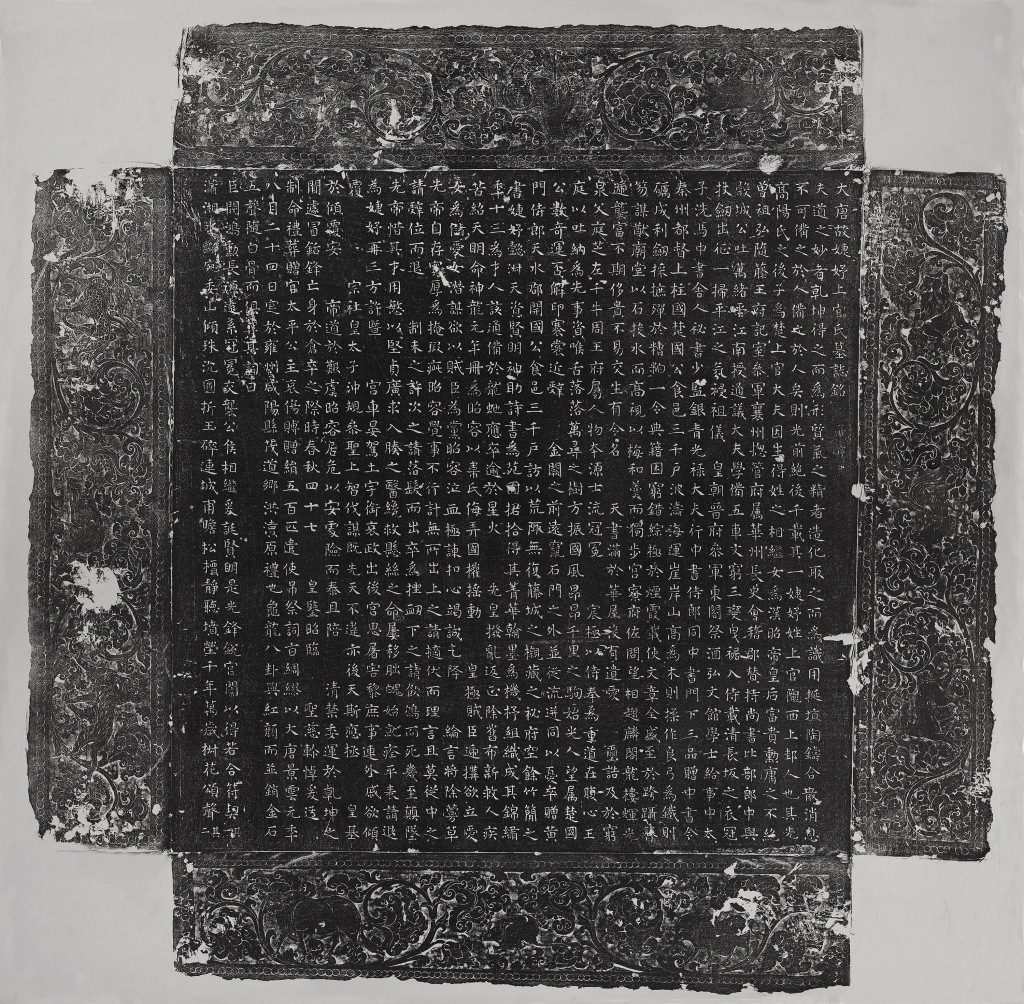 大唐故婕妤上官氏墓誌銘
夫道之妙者乾坤得之而為形質氣之精者造化取之而為識用挻埴陶鑄合散消息
不可備之於人備之於人矣則光前絕後千載其一婕妤姓上官隴西上邽人也其先
高陽氏之後子為楚上官大夫因生得姓之相繼女為漢昭帝皇后富貴勳庸之不絕
曾祖弘隨藤王府記室參軍襄州揔管府屬華州長史會稽郡贊持尚書比部郎中與
穀城公吐萬緒平江南授通議大夫學備五車文窮三變曳裾入侍載清長坂之衣冠
杖劍出征一掃平江之氛祲祖儀皇朝晉府參軍東閣祭酒弘文館學士給事中太
子洗馬中書舍人秘書少監銀青光祿大夫行中書侍郎同中書門下三品贈中書令
秦州都督上柱國楚國公食邑三千戶波濤海運崖岸山高為木則操作良弓為鐵則
礪成利劍採摭殫於糟粕一令典籍困窮錯綜極於煙霞載使文章全盛至於跨躡簪
笏謀猷廟堂以石投水而高視以梅和羹而獨步宮寮府佐問望相趨麟閣龍樓輝光
遞襲富不期侈貴不易交生有令名天書滿於華屋沒有遺愛璽誥及於窮
泉父庭芝左千牛周王府屬人物本源士流冠冕宸極以侍奉為重道在腹心王
庭以吐納為先事資喉舌落落萬尋之樹方振國風昂昂千里之駒始光人望屬楚國
公數奇運否解印褰裳近辭金闕之前遠竄石門之外並從流迸同以憂卒贈黃
門侍郎天水郡開國公食邑三千戶訪以荒陬無復藤城之櫬藏之秘府空餘竹簡之
書婕妤懿淑天資賢明神助詩書為苑囿捃拾得其菁華翰墨為機杼組織成其錦繡
年十三為才人該通備於龍蛇應卒逾於星火先皇撥亂返正除舊布新救人疾
苦紹天明命神龍元年冊為昭容以韋氏侮弄國權搖動皇極賊臣遞構欲立愛
女為儲愛女潛謀欲以賊臣為黨昭容泣血極諫扣心竭誠乞降綸言將除蔓草
先帝自存寬厚為掩瑕疵昭容覺事不行計無所出上之請擿伏而理言且莫從中之
請辭位而退制未之許次之請落髮而出卒為挫衄下之請飲鴆而死幾至顛墜
先帝惜其才用慜以堅貞廣求入腠之醫纔救懸絲之命屢移朏魄始就痊平表請退
為婕妤再三方許暨宮車晏駕土宇銜哀政出後宮思屠害黎庶事連外戚欲傾
覆宗社皇太子沖規參聖上智伐謀既先天不違亦後天斯應拯皇基
於傾覆安帝道於艱虞昭容居危以安處險而泰且陪清禁委運於乾坤之
間遽冒銛鋒亡身於倉卒之際時春秋四十七皇鑒昭臨聖慈軫悼爰造
制命禮葬贈官太平公主哀傷賻贈絹五百匹遣使弔祭詞旨綢繆以大唐景雲元年
八月二十四日窆於雍州咸陽縣茂道鄉洪瀆原禮也龜龍八卦與紅顏而並銷金石
五聲隨白骨而俱葬其詞曰
巨閥鴻勳長源遠系冠冕交襲公侯相繼爰誕賢明是光鋒銳宮闈以得若合符契其一
瀟湘水斷宛委山傾珠沉圓折玉碎連城甫瞻松檟靜聽墳塋千年萬歲椒花頌聲其二